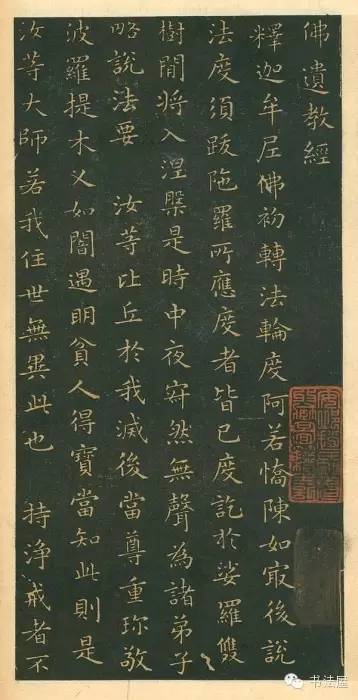 佛遺教經
釋迦牟尼佛初轉法輪度阿若憍陳如寂後說
法度須跋陁羅所應度者皆已度訖於娑羅雙
樹間將入涅槃是時中夜寂然無聲為諸弟子
略說法要 汝等比丘於我滅後當尊重珎敬
波羅提木叉如闇遇明貧人得寶當知此則是
汝等大師若我住世無異此也 持淨戒者不
书法屋